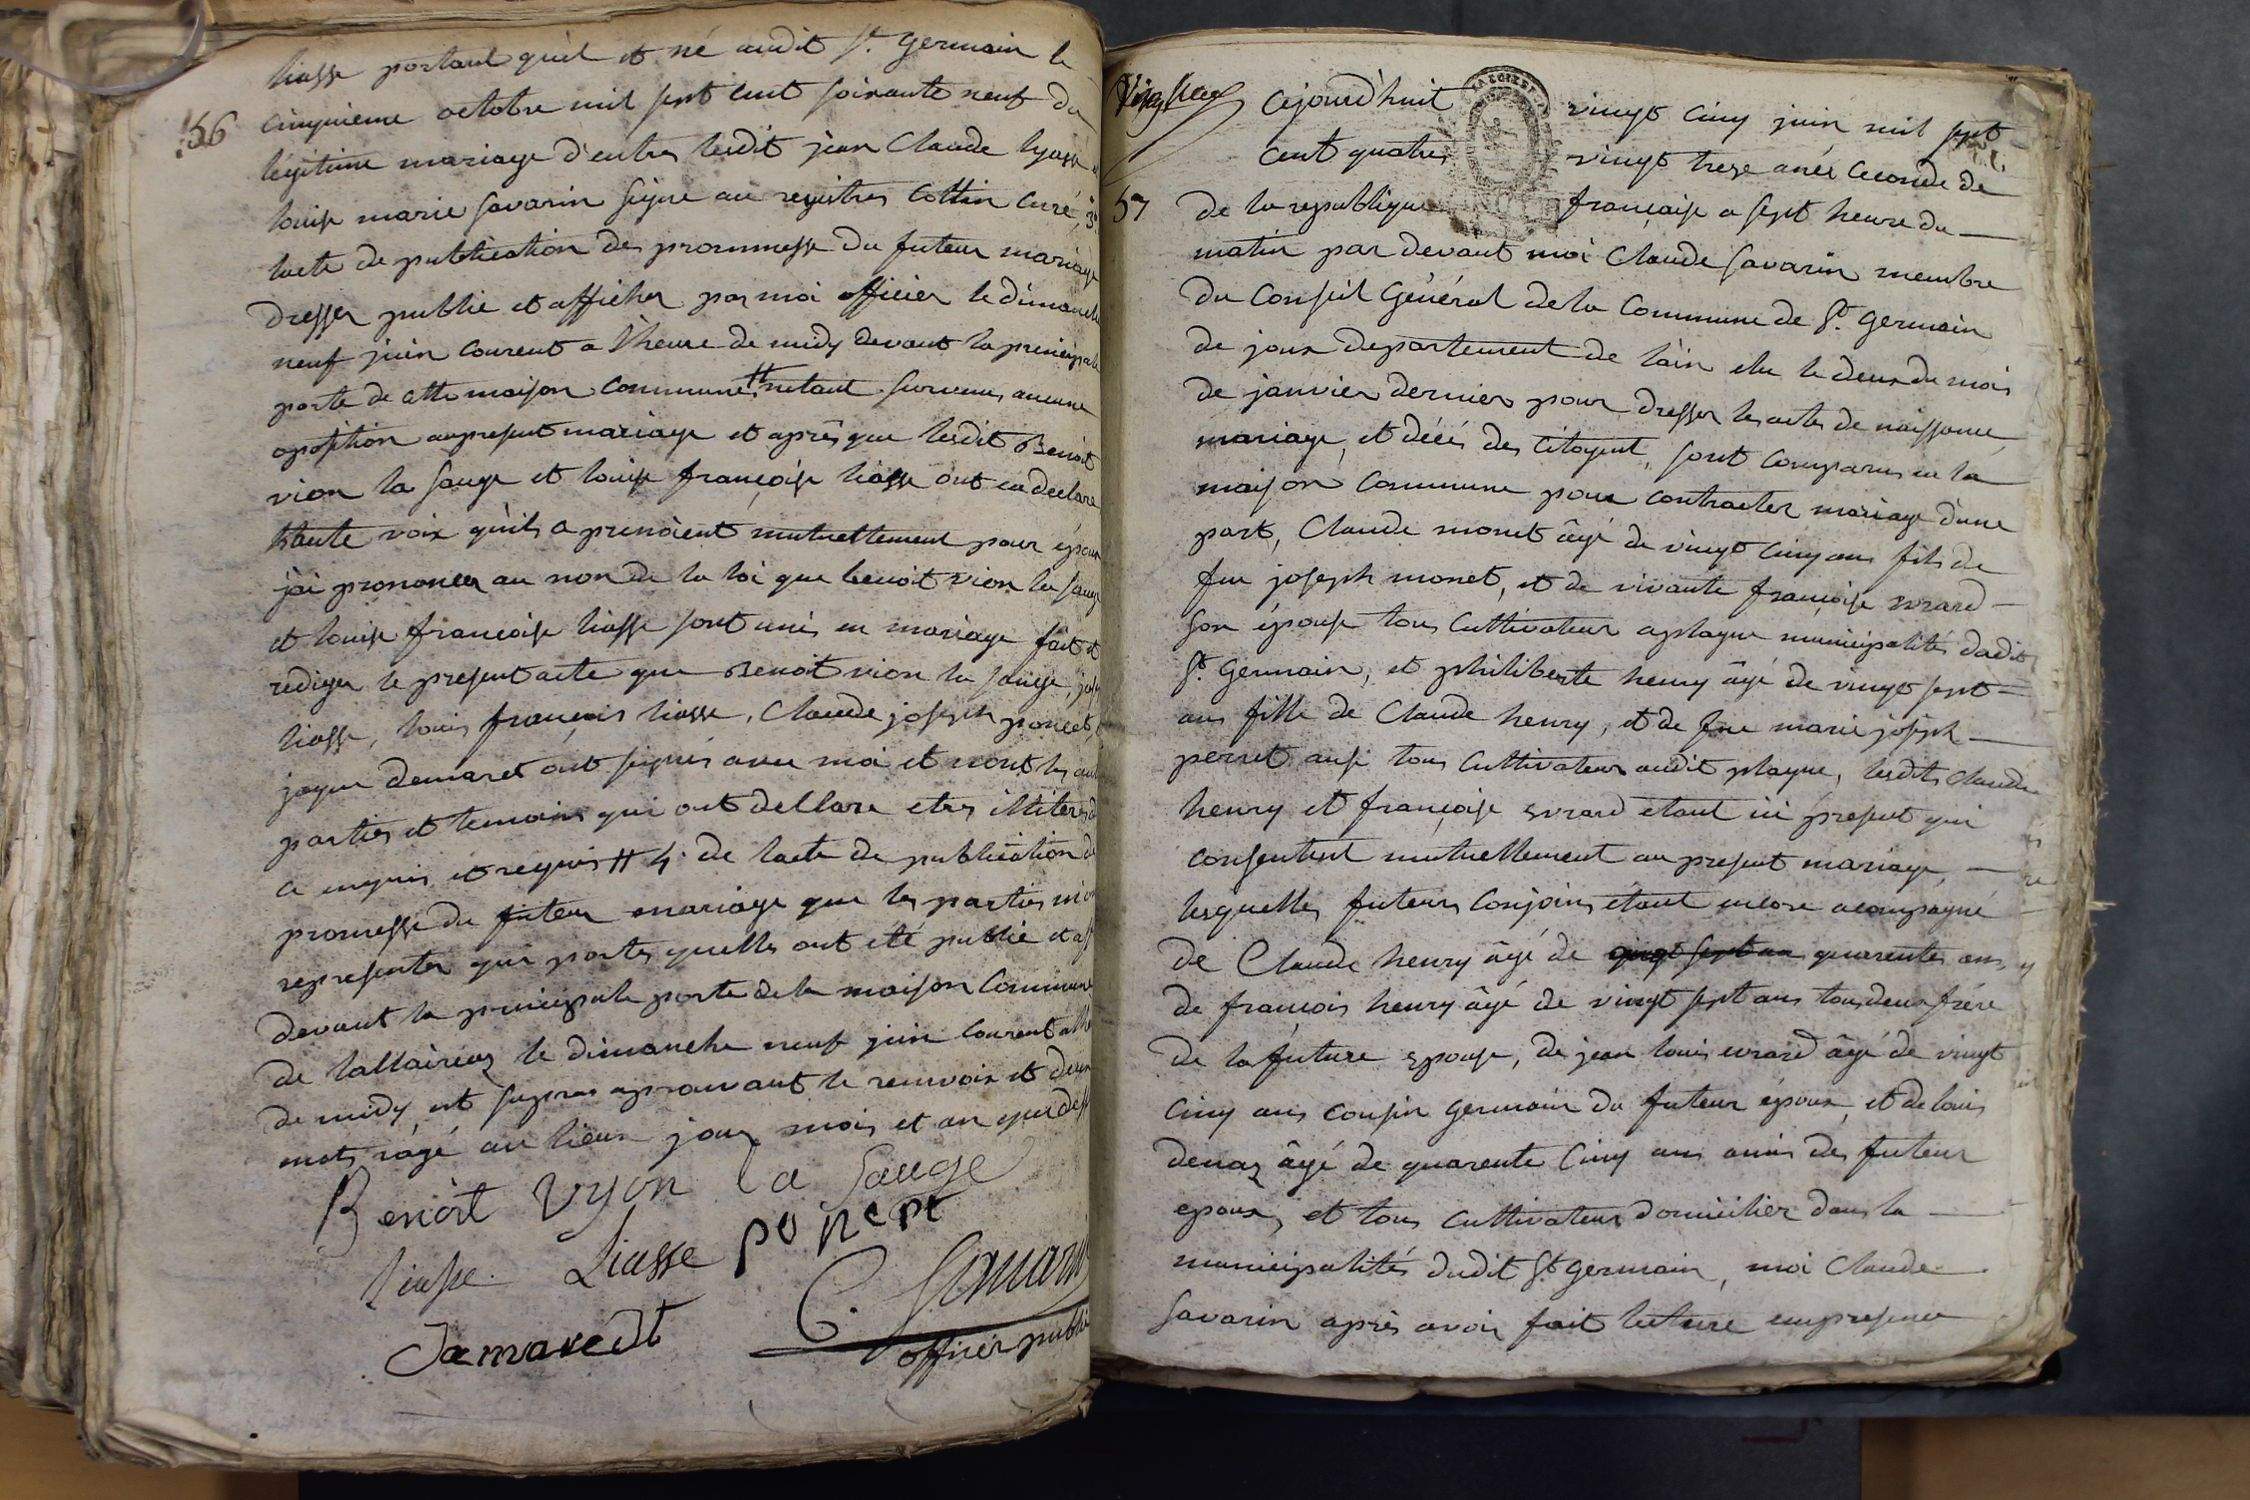 liasse portant quil et né audit St. Germain le
156
cinquieme octobre mil sept cent soixante neuf du
légitime mariage d'entres ledit jean Claude lyasse
louise marie Savarin signe au registres Cottin Curé, 3°
lacte de publication des prommesse du futeur mariage
dresser publié et afficher par moi officier le dimanche
neuf juin courent a l'heure de midy devant la principale
porte de cette maison commune # netant survenus aucune
oposition aupresent mariage et après que lesdit Benoit
vion la sauge et louise françoise liasse ont eu declaré
haute voix quils a prenoient mutuellement pour époux
jai prononcer au non de la loi que benoit vion la sauge
et louise françoise liasse sont unis en mariage fait et
rediger le present acte que Benoit vion la sauge,
liasse, louis françois liasse, Claude joseph poncet,
jaque demaret ont signés avec moi et nont les
parties et temoins qui ont dellare etres illiteres
a enquis et requis # 4° de lacte de publication de
promesse du futeur mariage que les parties
representer qui portes quelles ont eté publié et
devant la principale porte de la maison Commune
de lallairiaz le dimanche neuf juin courent
de midy et supras aprouvant le renvoix et deux
mots rayé au lieux jour mois et an que dess
Benoit Vyon la Sauge
liasse. Liasse poncet
Jamaredt C. Savarin
officier public
57
cejourd'huit vingt cinq juin mil sept
cent quatres vingt treze anée ceconde de
de la republique française a sept heure du
matin par devant moi Claude Savarin membre
du Conseil Général de la Commune de St. Germain
de joux departement de lain elu le deux du mois
de janvier derniers pour dresser les actes de naissance,
mariage, et décés des citoyent, sont comparus en la
maison commune pour contracter mariage d'une
part, Claude monet âgé de vingt cinq ans fils de
feu joseph monet, et de vivante françoise evrard
son épouse tous cultivateur a plagne municipalités dudit
St. Germain, et philiberte henry âgé de vingt sept
ans fille de Claude henry, et de feue marie joseph
perret ausi tous cultivateur audit plagne, lesdits Claude
henry et françoise evrard etant ici présent qui
consentent mutuellement au present mariage,
lesquelles futeurs conjoins étant encore acompagné
de Claude henry âgé de vingt sept an quarente ans,
de francois henry âgé de vingt sept ans tous deux frére
de la future epouse, de jean louis evrard âgé de vingt
cinq ans cousin germain du futeur époux, et de louis
denaz âgé de quarente cinq ans amis des futeur
epoux, et tous cultivateur domicilier dans la
municipalités dudit St Germain, moi Claude
Savarin après avoir fait lecture enpresence